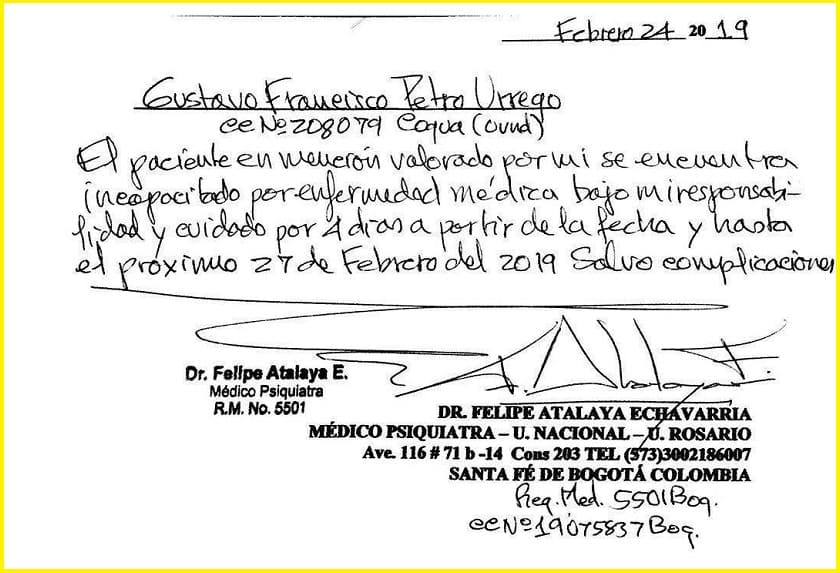 Febrero 24 2019
Gustavo Francisco Petro Urrego
cc Nº 208079 Cogua (Cund)
El paciente en mención valorado por mi se encuentra
incapacitado por enfermedad médica bajo mi responsabi-
lidad y cuidado por 4 días a partir de la fecha y hasta
el próximo 27 de Febrero del 2019 Salvo complicaciones
Dr. Felipe Atalaya E.
Médico Psiquiatra
R.M. No. 5501
F. Atalaya E.
DR. FELIPE ATALAYA ECHAVARRIA
MÉDICO PSIQUIATRA – U. NACIONAL – U. ROSARIO
Ave. 116 # 71 b -14 Cons 203 TEL (573)3002186007
SANTA FÉ DE BOGOTÁ COLOMBIA
Reg. Med. 5501 Bog.
cc Nº 19075837 Bog.